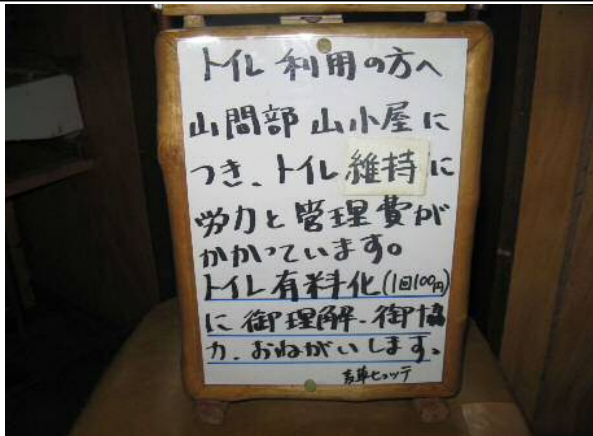 トイレ利用の方へ
山間部山小屋に
つき、トイレ維持に
労力と管理費が
かかっています。
トイレ有料化(1回100円)
に御理解、御協
力、おねがいします。
麦草ヒュッテ